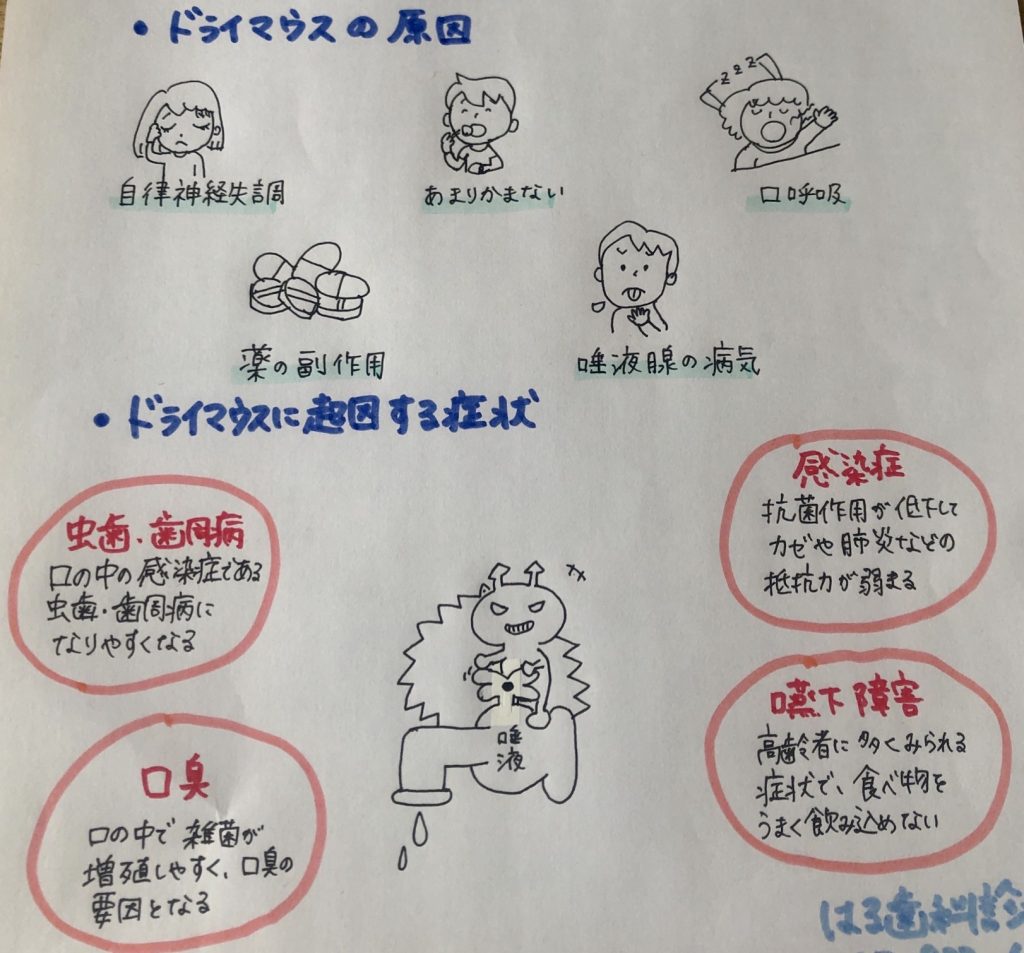 ・ドライマウスの原因
自律神経失調
あまりかまない
口呼吸
zzz
薬の副作用
唾液腺の病気
・ドライマウスに起因する症状
虫歯・歯周病
口の中の感染症である
虫歯・歯周病に
なりやすくなる
感染症
抗菌作用が低下して
カゼや肺炎などの
抵抗力が弱まる
唾
液
口臭
口の中で雑菌が
増殖しやすく、口臭の
要因となる
嚥下障害
高齢者に多くみられる
症状で、食べ物を
うまく飲み込めない
はる歯科診